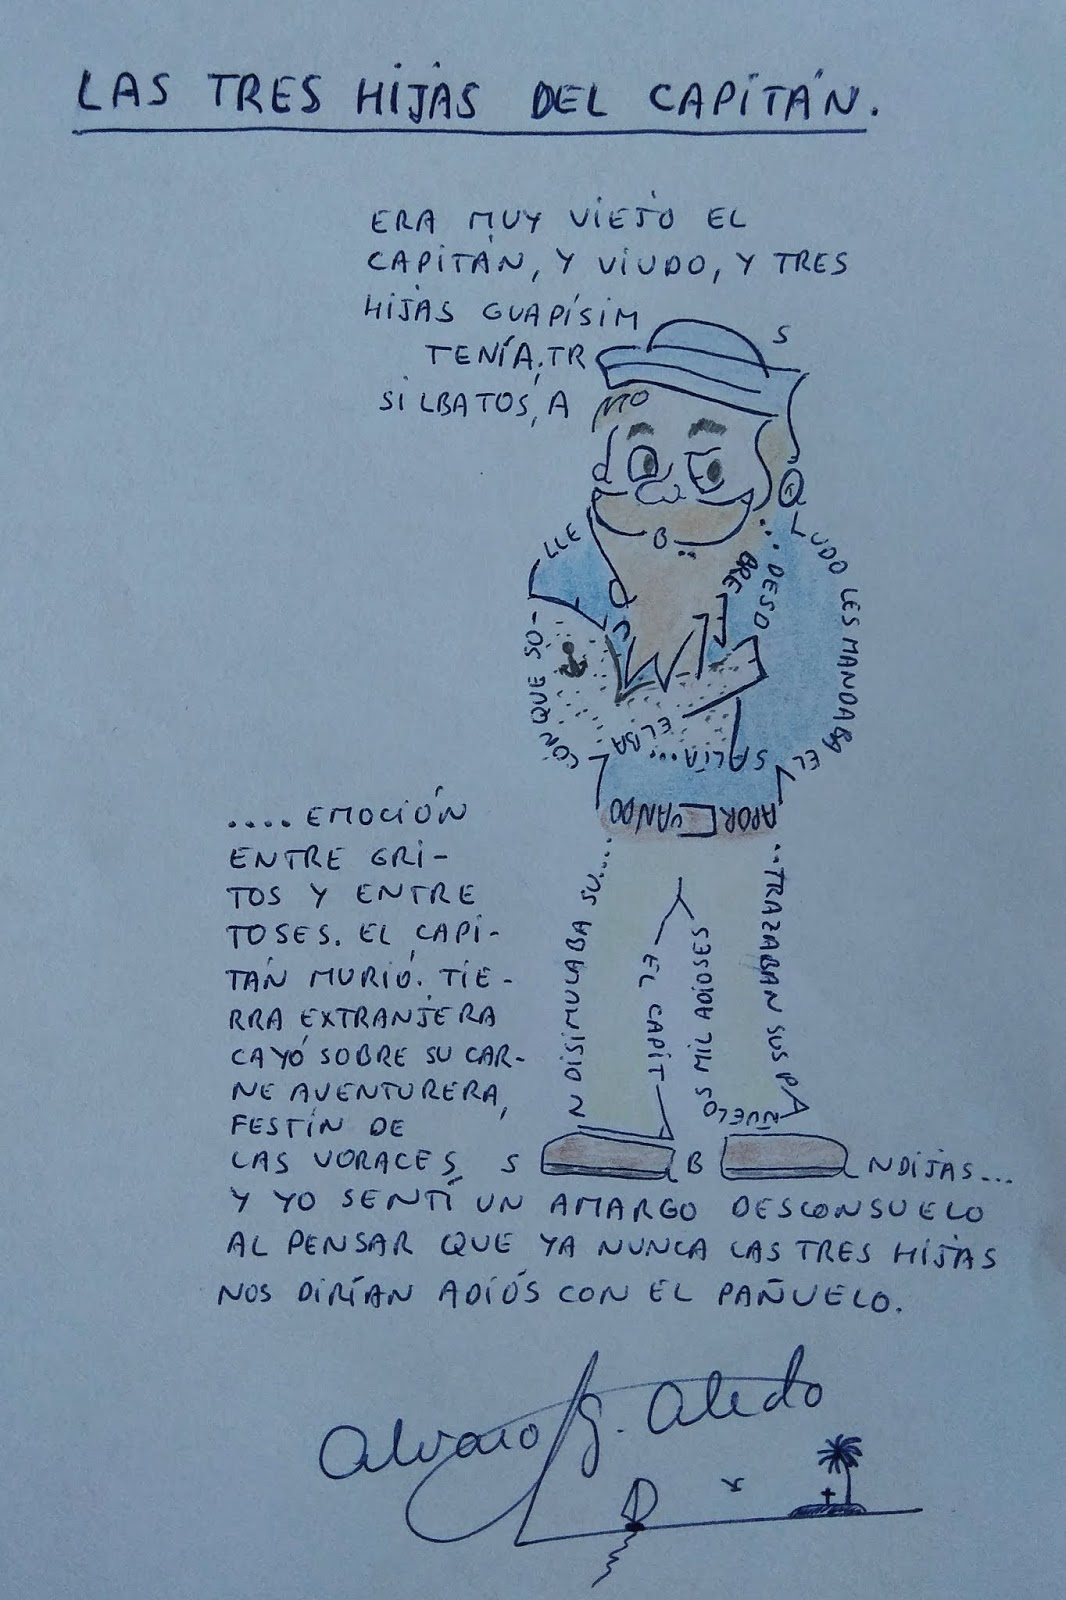 LAS TRES HIJAS DEL CAPITÁN.
ERA MUY VIEJO EL
CAPITÁN, Y VIUDO, Y TRES
HIJAS GUAPÍSIM
TENÍA; TR
S
SILBATOS, A
MO
B
... DESO
BRE
LUDO LES MANDABA EL
LLE
CON QUE SO-
EL BA
SALÍA....
APOR
YANDO
N DISIMULABA SU....
EL CAPIT
Y
LOS MIL ADIOSES
...TRAZABAN SUS PA
ÑUELO
.... EMOCIÓN
ENTRE GRI-
TOS Y ENTRE
TOSES. EL CAPI-
TÁN MURIÓ. TIE-
RRA EXTRANJERA
CAYÓ SOBRE SU CAR-
NE AVENTURERA,
FESTÍN DE
LAS VORACES S B NDIJAS...
Y YO SENTÍ UN AMARGO DESCONSUELO
AL PENSAR QUE YA NUNCA LAS TRES HIJAS
NOS DIRÍAN ADIÓS CON EL PAÑUELO.
Alvaro G. Aledo